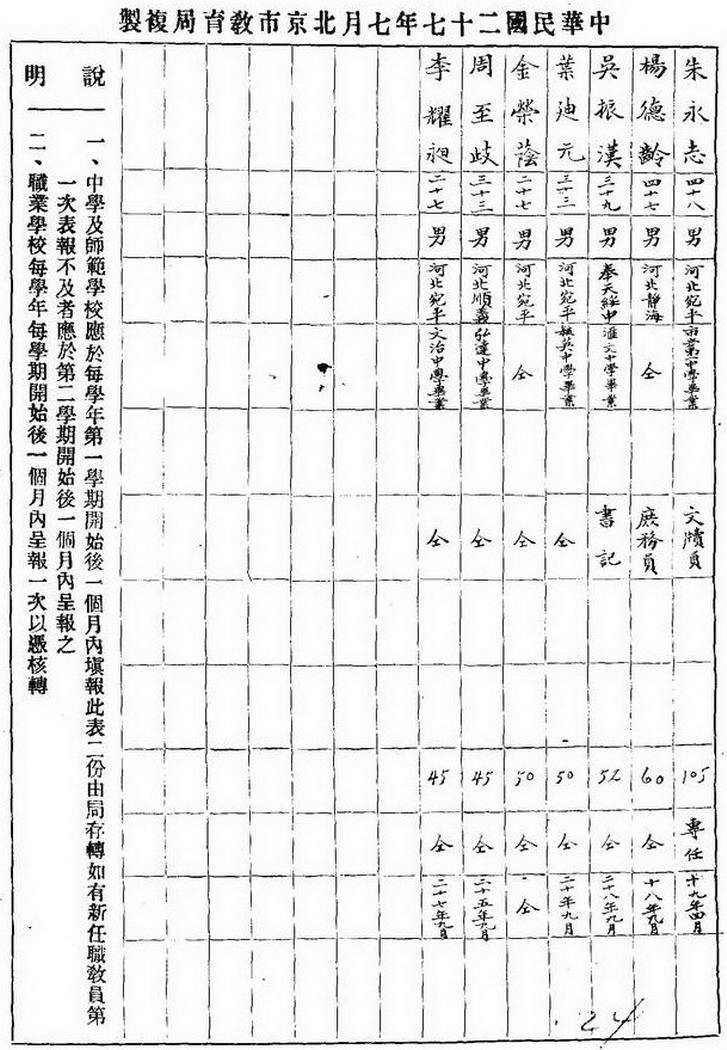 中華民國二十七年七月北京市教育局複製
朱永志 四十八 男 河北宛平 市立第一中學畢業 文牘員 105 專任 十九年四月
楊德齡 四十七 男 河北靜海 仝 庶務員 60 仝 十八年九月
吳振漢 三十九 男 奉天綏中 滙文中學畢業 書記 52 仝 二十八年九月
葉廸元 三十三 男 河北宛平 中學畢業 仝 50 仝 二十年九月
金榮蔭 二十七 男 河北宛平 仝 仝 50 仝 仝
周至歧 三十三 男 河北順義 弘達中學畢業 仝 45 仝 二十五年九月
李耀昶 二十七 男 河北宛平 文治中學畢業 仝 45 仝 二十七年九月
說明
一、中學及師範學校應於每學年第一學期開始後一個月內塡報此表二份由局存轉如有新任職教員第
一次表報不及者應於第二學期開始後一個月內呈報之
二、職業學校每學年每學期開始後一個月內呈報一次以憑核轉
24